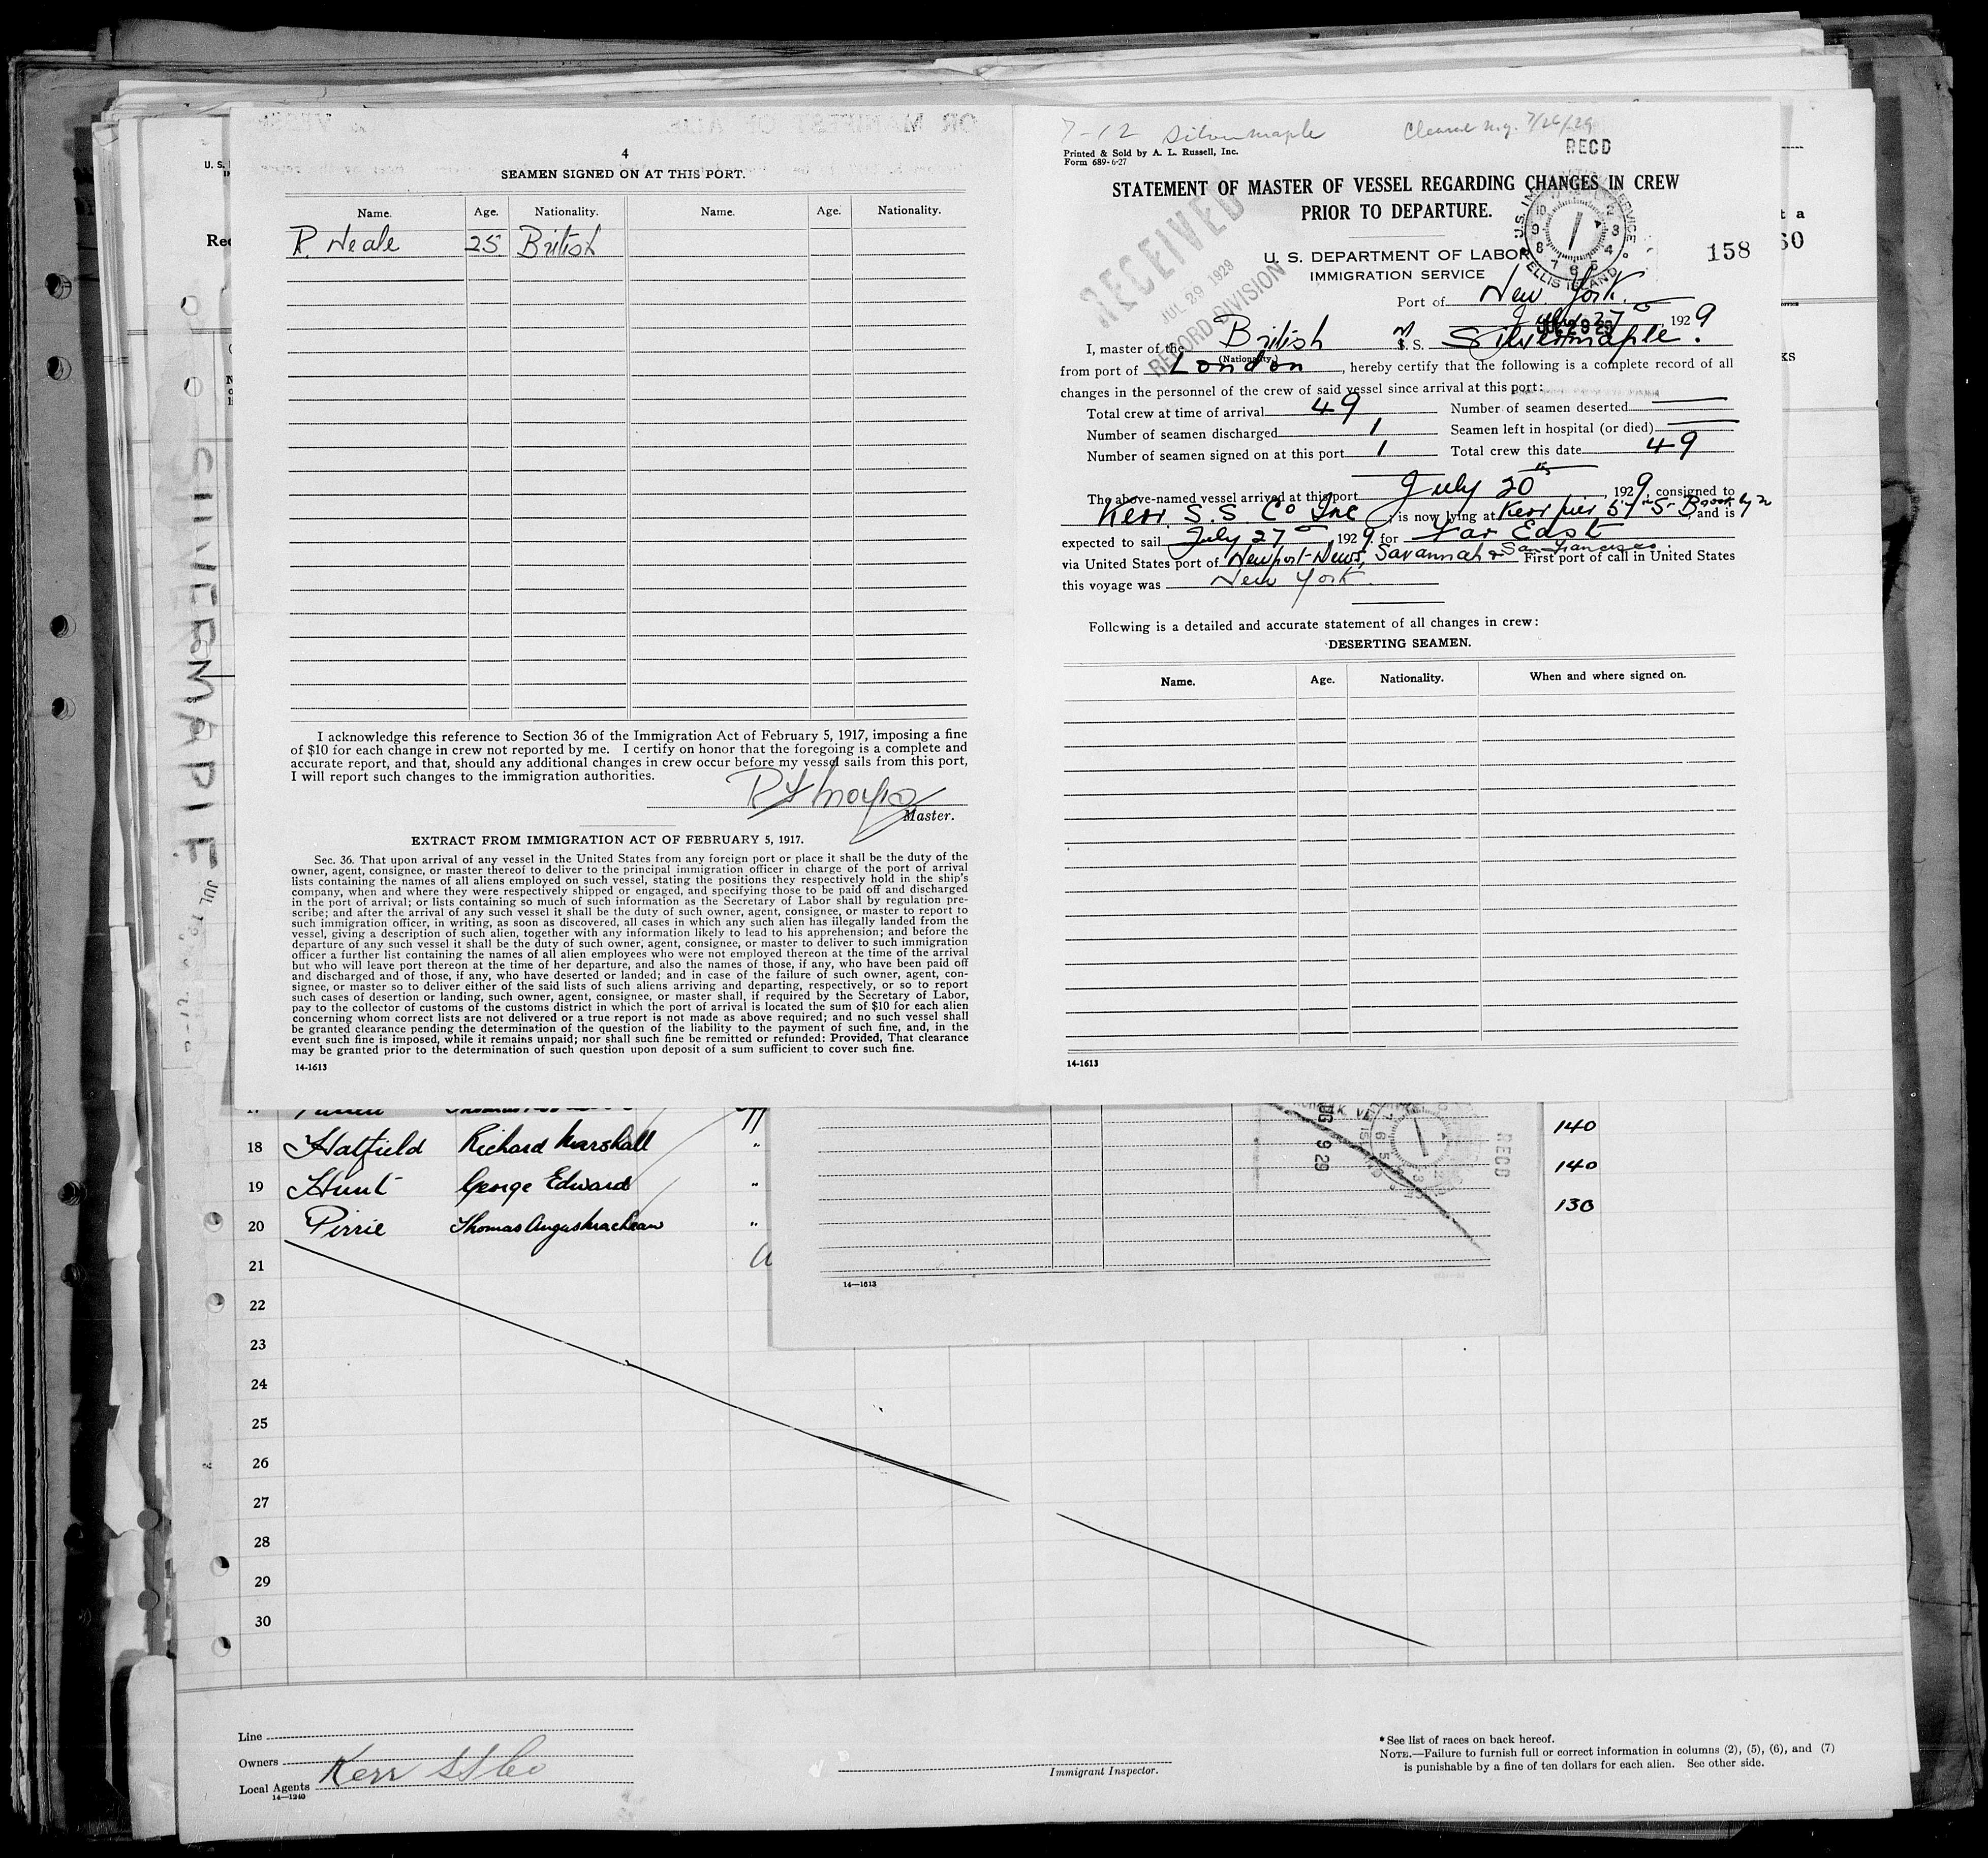 4
SEAMEN SIGNED ON AT THIS PORT.
Name. Age. Nationality. Name. Age. Nationality.
R. Neale 25 British
I acknowledge this reference to Section 36 of the Immigration Act of February 5, 1917, imposing a fine
of $10 for each change in crew not reported by me. I certify on honor that the foregoing is a complete and
accurate report, and that, should any additional changes in crew occur before my vessel sails from this port,
I will report such changes to the immigration authorities.
Master.
EXTRACT FROM IMMIGRATION ACT OF FEBRUARY 5, 1917.
Sec. 36. That upon arrival of any vessel in the United States from any foreign port or place it shall be the duty of the
owner, agent, consignee, or master thereof to deliver to the principal immigration officer in charge of the port of arrival
lists containing the names of all aliens employed on such vessel, stating the positions they respectively hold in the ship's
company, when and where they were respectively shipped or engaged, and specifying those to be paid off and discharged
in the port of arrival; or lists containing so much of such information as the Secretary of Labor shall by regulation pre-
scribe; and after the arrival of any such vessel it shall be the duty of such owner, agent, consignee, or master to report to
such immigration officer, in writing, as soon as discovered, all cases in which any such alien has illegally landed from the
vessel, giving a description of such alien, together with any information likely to lead to his apprehension; and before the
departure of any such vessel it shall be the duty of such owner, agent, consignee, or master to deliver to such immigration
officer a further list containing the names of all alien employees who were not employed thereon at the time of the arrival
but who will leave port thereon at the time of her departure, and also the names of those, if any, who have been paid off
and discharged and of those, if any, who have deserted or landed; and in case of the failure of such owner, agent, con-
signee, or master so to deliver either of the said lists of such aliens arriving and departing, respectively, or so to report
such cases of desertion or landing, such owner, agent, consignee, or master shall, if required by the Secretary of Labor,
pay to the collector of customs of the customs district in which the port of arrival is located the sum of $10 for each alien
concerning whom correct lists are not delivered or a true report is not made as above required; and no such vessel shall
be granted clearance pending the determination of the question of the liability to the payment of such fine, and, in the
event such fine is imposed, while it remains unpaid; nor shall such fine be remitted or refunded: Provided, That clearance
may be granted prior to the determination of such question upon deposit of a sum sufficient to cover such fine.
14-1613
7-12 Silvermaple Cleared N.Y. 7/26/29
RECD
Printed & Sold by A. L. Russell, Inc.
Form 689-6-27
STATEMENT OF MASTER OF VESSEL REGARDING CHANGES IN CREW
PRIOR TO DEPARTURE.
U. S. DEPARTMENT OF LABOR
IMMIGRATION SERVICE
158
RECEIVED
JUL 29 1929
RECORD DIVISION
ELLIS ISLAND
Port of New York
July 27 1929
JUL 29 29
I, master of the British S. S. Silvermaple.
(Nationality.)
from port of London, hereby certify that the following is a complete record of all
changes in the personnel of the crew of said vessel since arrival at this port:
Total crew at time of arrival 49 Number of seamen deserted
Number of seamen discharged 1 Seamen left in hospital (or died)
Number of seamen signed on at this port 1 Total crew this date 49
The above-named vessel arrived at this port July 20th, 1929, consigned to
Kerr S.S Co Inc, is now lying at Kerr pier 57th St Brooklyn, and is
expected to sail July 27th, 1929 for Far East
via United States port of Newport-News, Savannah & San Francisco. First port of call in United States
this voyage was New York.
Following is a detailed and accurate statement of all changes in crew:
DESERTING SEAMEN.
Name. Age. Nationality. When and where signed on.
14-1613
SILVERMAPLE
17
18 Hatfield Richard Marshall " 140
19 Hunt George Edward " 140
20 Pirrie Thomas Angus Maclean " 130
AUG 9 29
RECD
14—1613
21
22
23
24
25
26
27
28
29
30
Line
Owners
Local Agents Kerr SS Co
14—1240
Immigrant Inspector.
* See list of races on back hereof.
NOTE.—Failure to furnish full or correct information in columns (2), (5), (6), and (7)
is punishable by a fine of ten dollars for each alien. See other side.